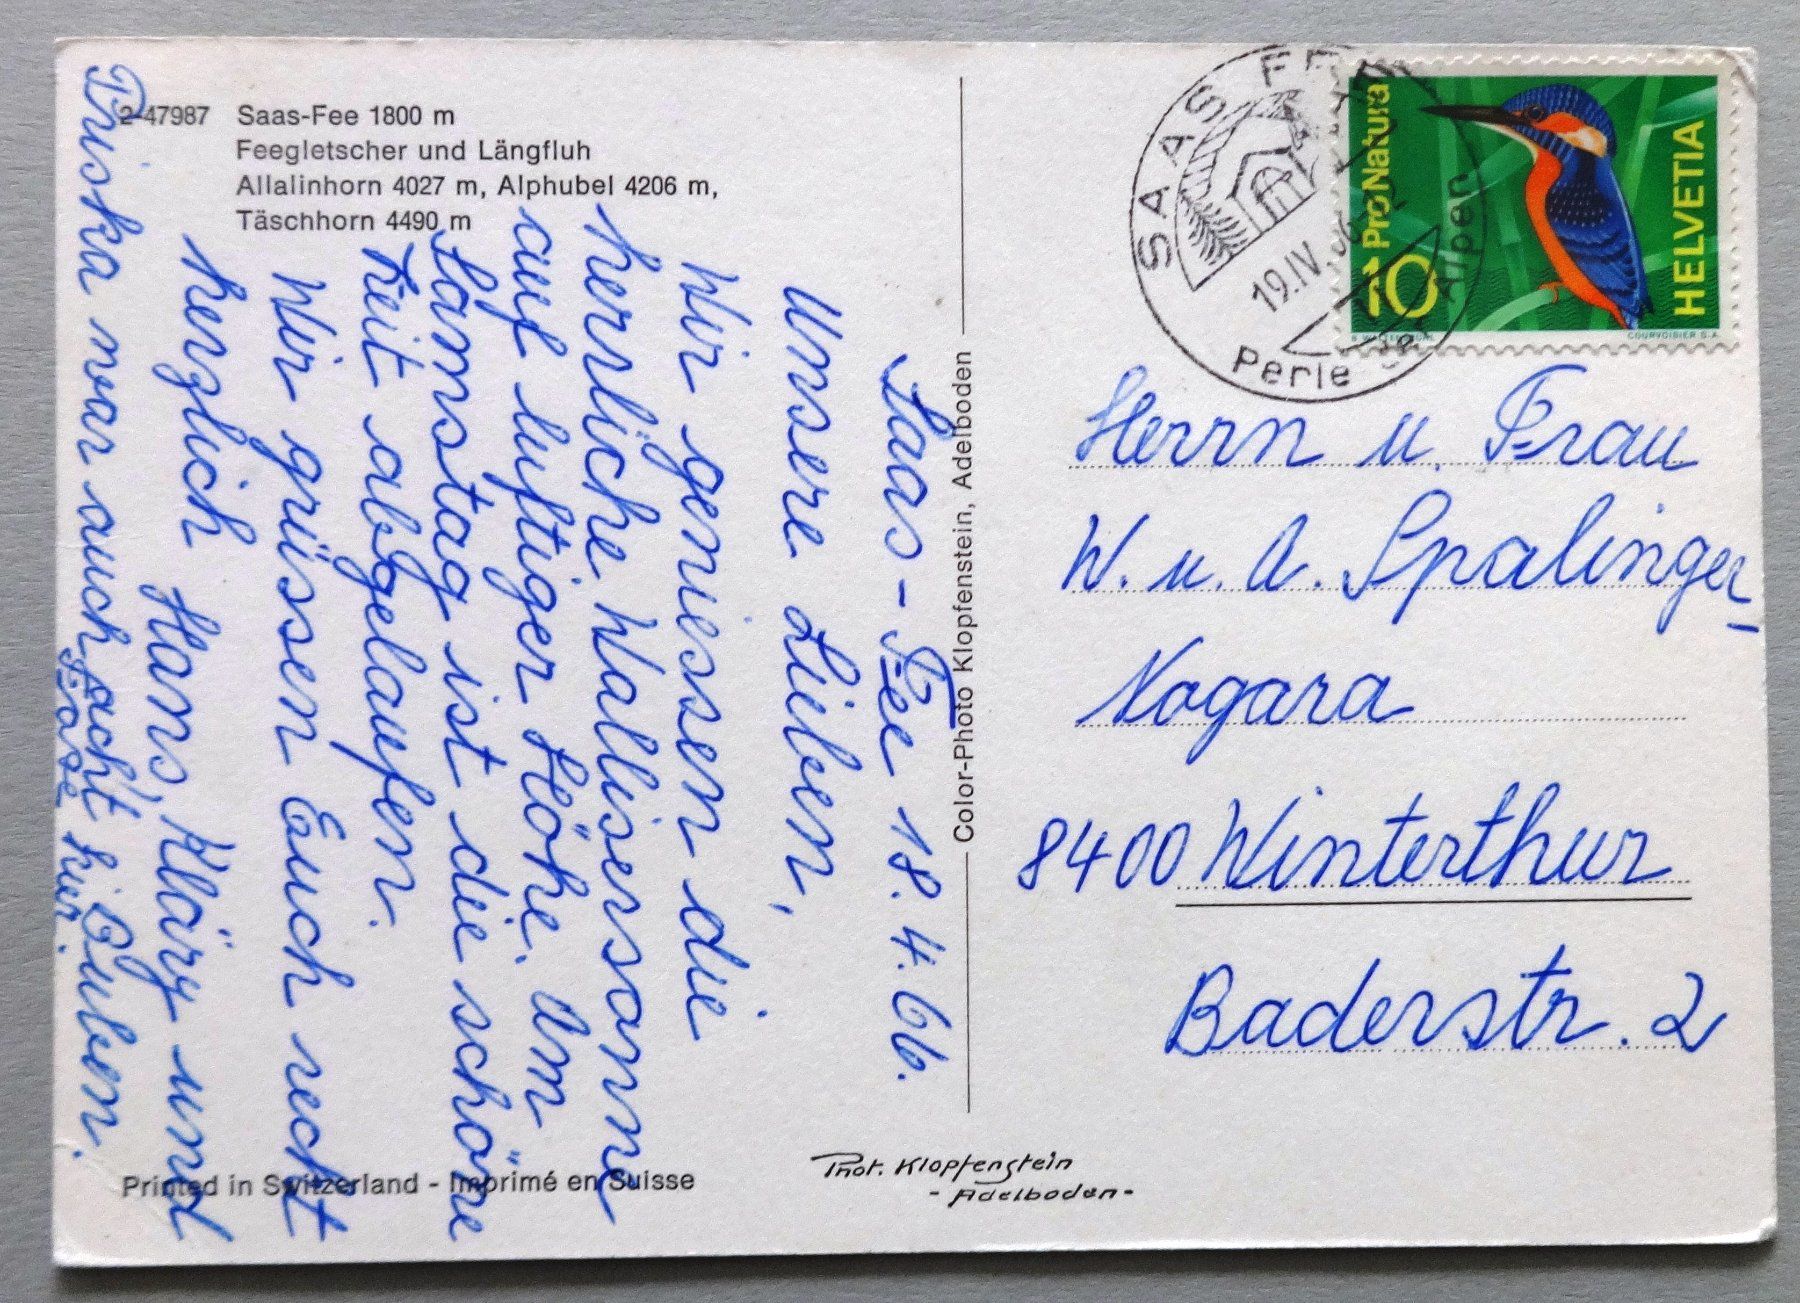 2-47987 Saas-Fee 1800 m
Feegletscher und Längfluh
Allalinhorn 4027 m, Alphubel 4206 m,
Täschhorn 4490 m
Saas-Fee 18. 4. 66.
Unsere Lieben,
Wir geniessen die
herrliche Wallisersonne
auf luftiger Höhe. Am
Samstag ist die schöne
Zeit abgelaufen.
Wir grüssen Euch recht
herzlich Hans, Kläry und
Buben.
Priska war auch acht
Tage hier.
Printed in Switzerland - Imprimé en Suisse
Color-Photo Klopfenstein, Adelboden
Phot. Klopfenstein
- Adelboden -
SAAS-FEE
19.IV.66
Perle der Alpen
10+ Pro Natura
HELVETIA
COURVOISIER S.A.
Herrn u. Frau
W. u. A. Spalinger-
Nogara
8400 Winterthur
Baderstr. 2